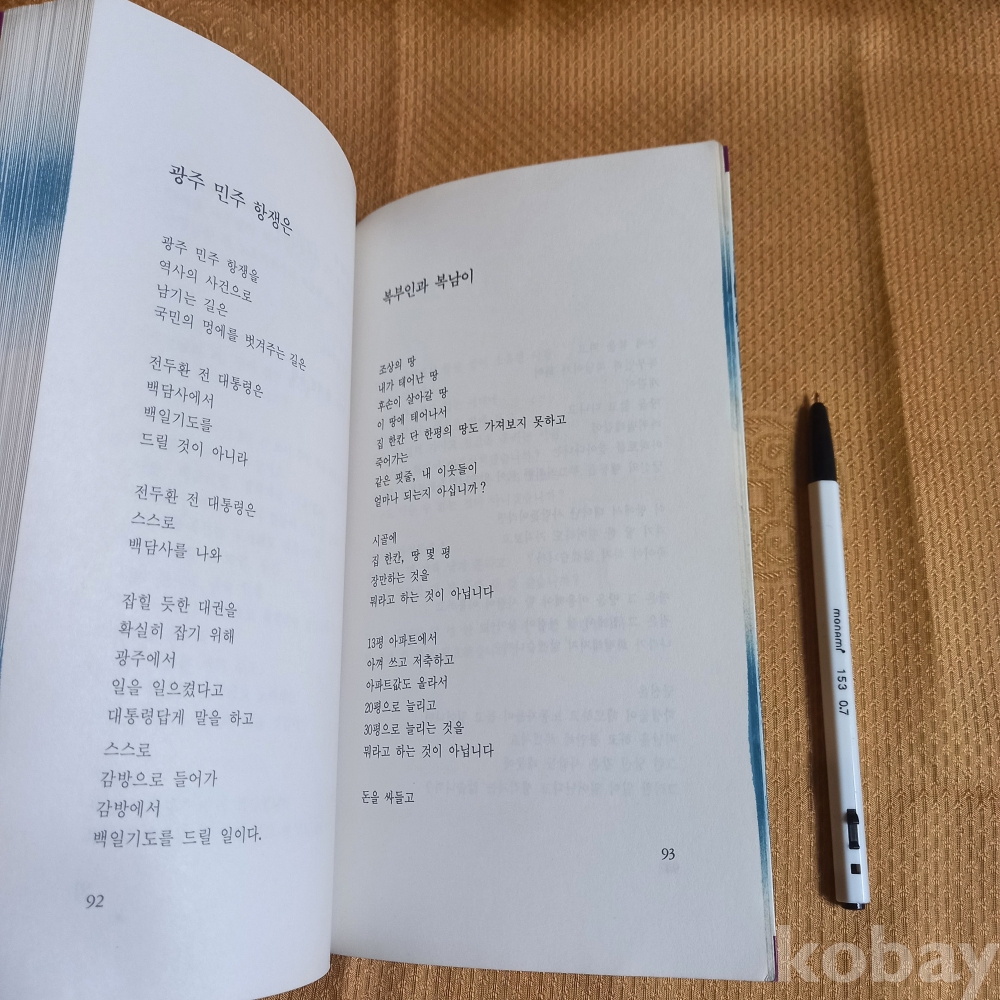 광주 민주 항쟁은
광주 민주 항쟁을
역사의 사건으로
남기는 길은
국민의 멍에를 벗겨주는 길은
전두환 전 대통령은
백담사에서
백일기도를
드릴 것이 아니라
전두환 전 대통령은
스스로
백담사를 나와
잡힐 듯한 대권을
확실히 잡기 위해
광주에서
일을 일으켰다고
대통령답게 말을 하고
스스로
감방으로 들어가
감방에서
백일기도를 드릴 일이다.
92
복부인과 복남이
조상의 땅
내가 태어난 땅
후손이 살아갈 땅
이 땅에 태어나서
집 한칸 단 한평의 땅도 가져보지 못하고
죽어가는
같은 핏줄, 내 이웃들이
얼마나 되는지 아십니까?
시골에
집 한칸, 땅 몇 평
장만하는 것을
뭐라고 하는 것이 아닙니다
13평 아파트에서
아껴 쓰고 저축하고
아파트값도 올라서
20평으로 늘리고
30평으로 늘리는 것을
뭐라고 하는 것이 아닙니다
돈을 싸들고
93
monami 153 0.7
kobay